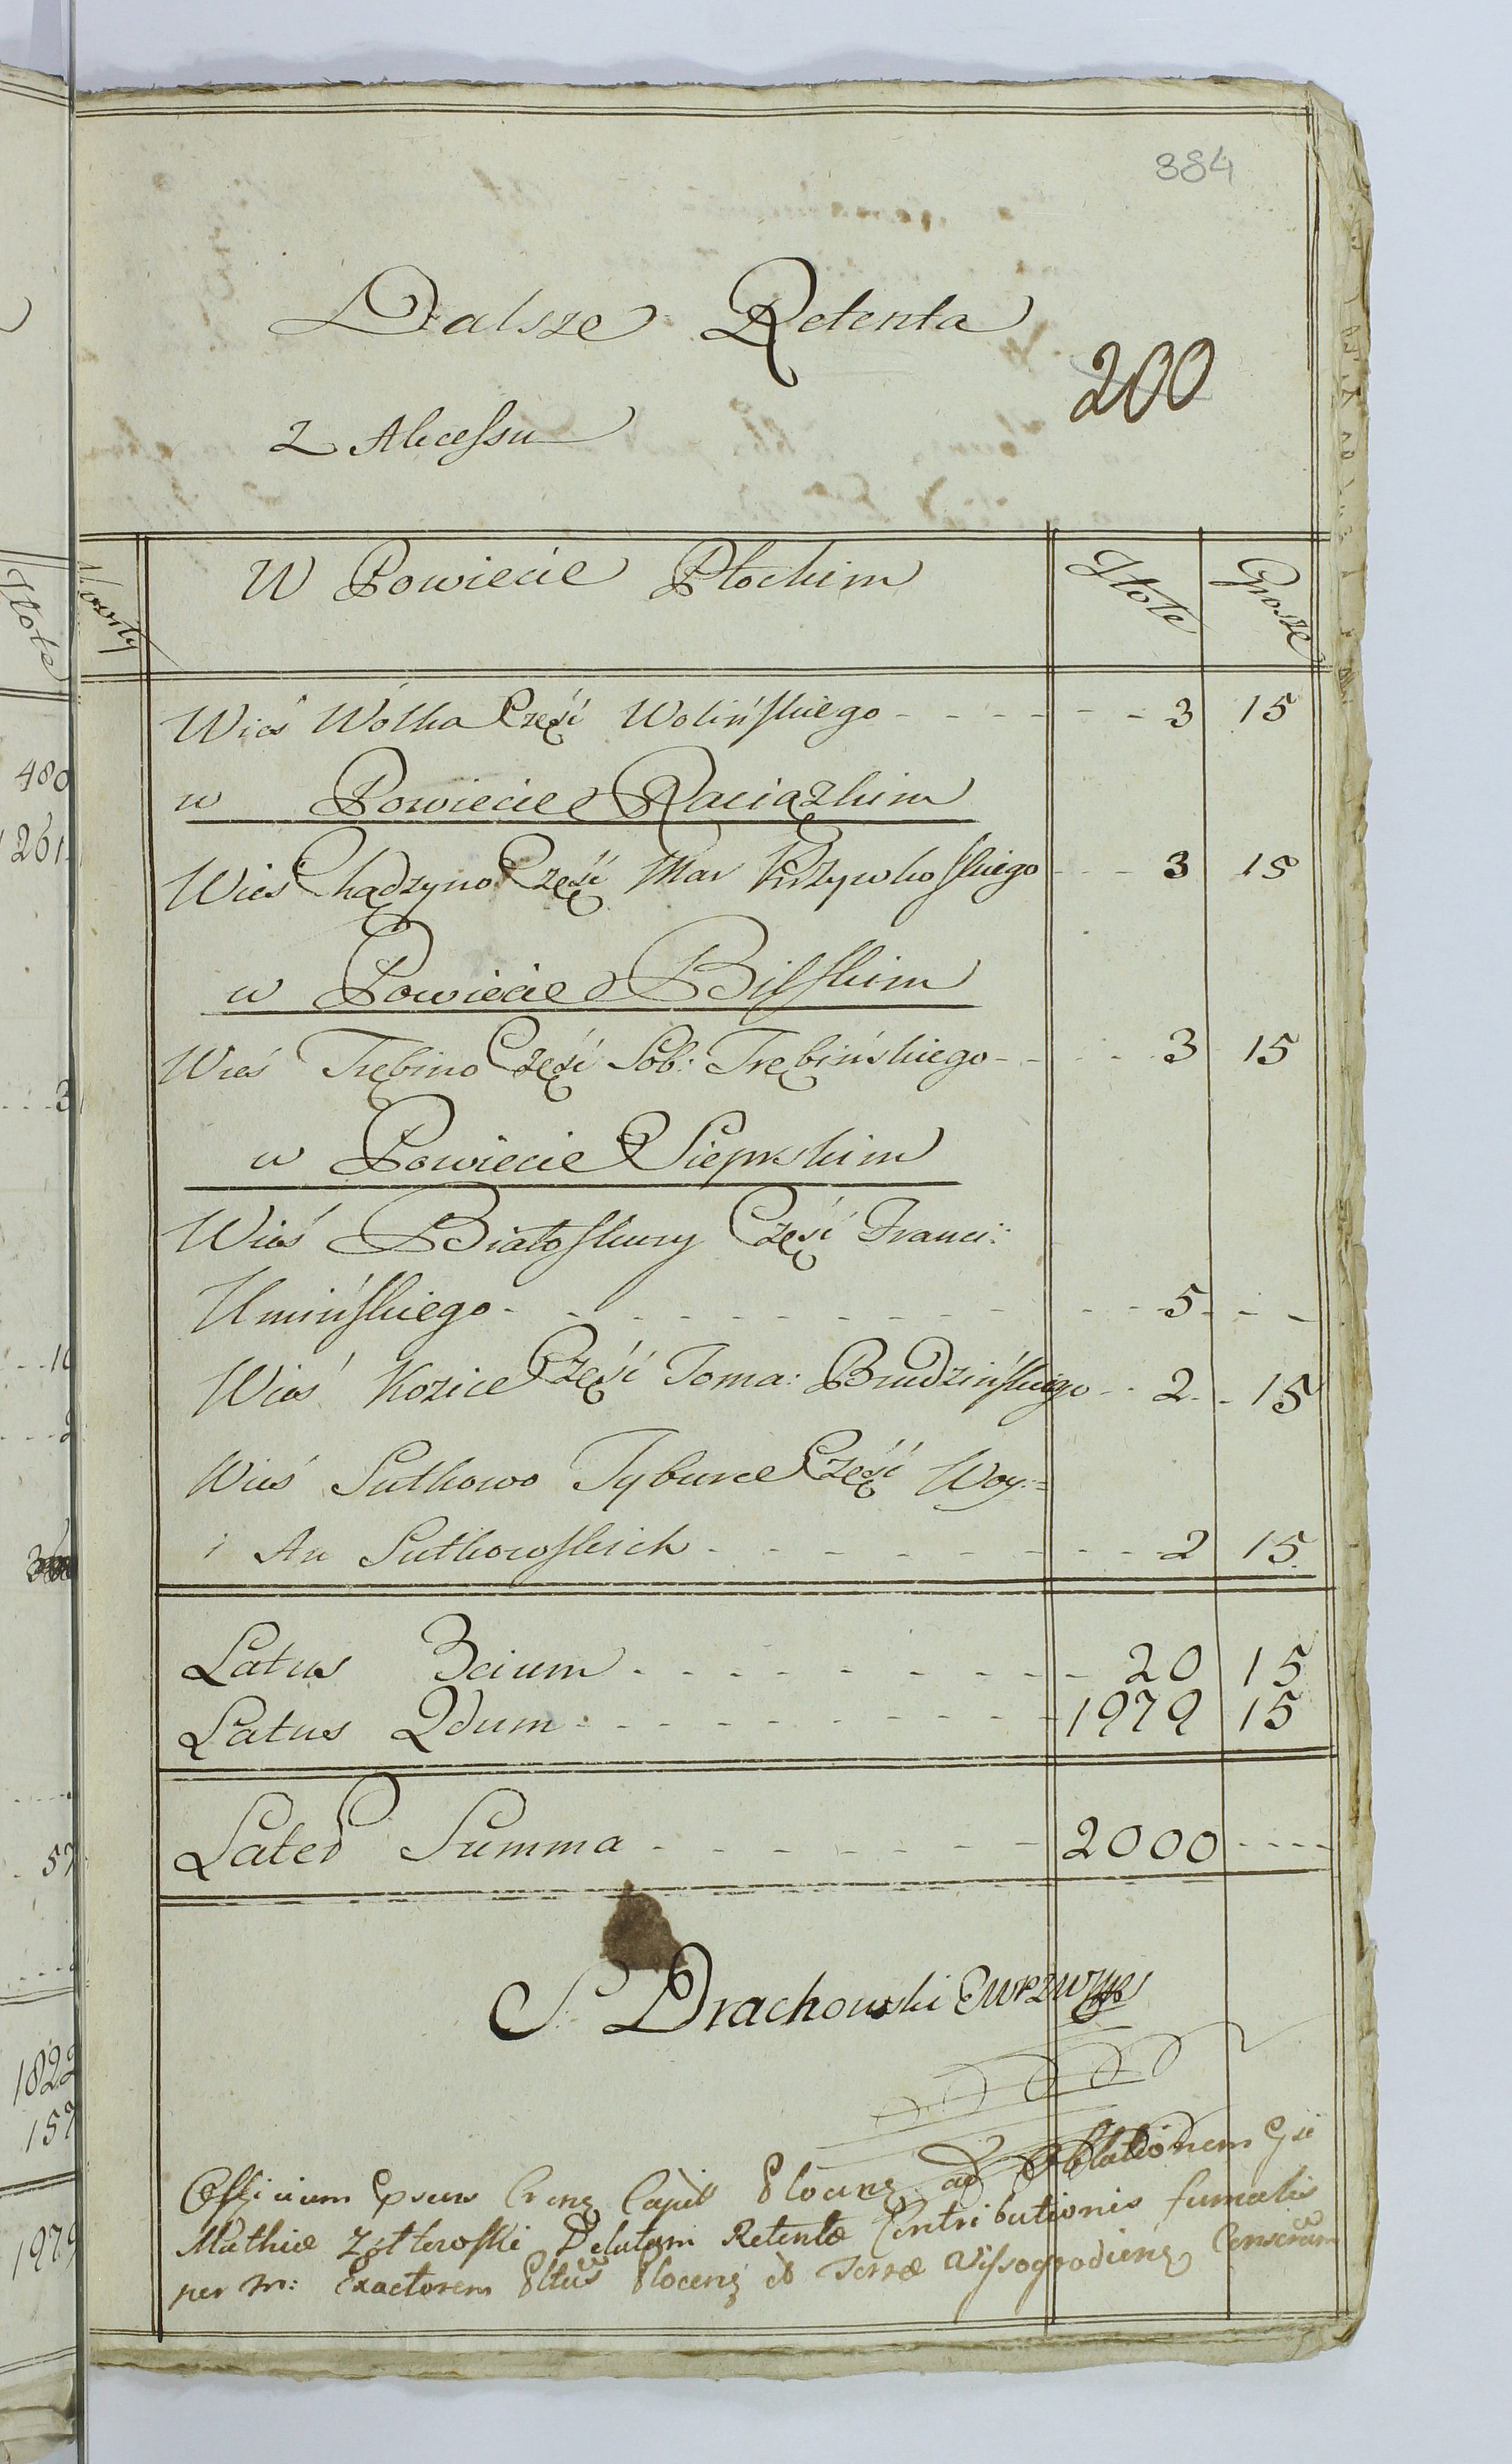 884
Dalsze Retenta
200
z Abcessu
W Powiecie Płockim Złote Grosze
Wieś Wólka Część Wolińskiego - - - - - - 3 15
w Powiecie Raciążkim
Wieś Chądzyno Część Mar Krzywkoskiego - - - 3 15
w Powiecie Bilskim
Wieś Trębino Część Sob: Trębińskiego - - - - 3 15
w Powiecie Sieprskim
Wieś Białoskury Część Franci:
Umińskiego - - - - - - - - - - 5 - - -
Wieś Kozice Część Toma: Brudzińskiego - - 2 - 15
Wieś Sutkowo Tyburce Część Woy:=
i An Sutkowskich - - - - - - - - - 2 15.
Latus 3cium - - - - - - - - - 20 15
Latus 2dum - - - - - - - - - 1979 15
Lateru Summa - - - - - - - 2000 - - - -
S. Drachowski
Officium Capit Plocens ad Oblationem
Mathie Delatam Retenta Contributionis fumalis
per M: Exactorem Pltus Plocens et Terræ Wyssogrodiens
480
261
3
10
2
57
1822
157
1979
Złote